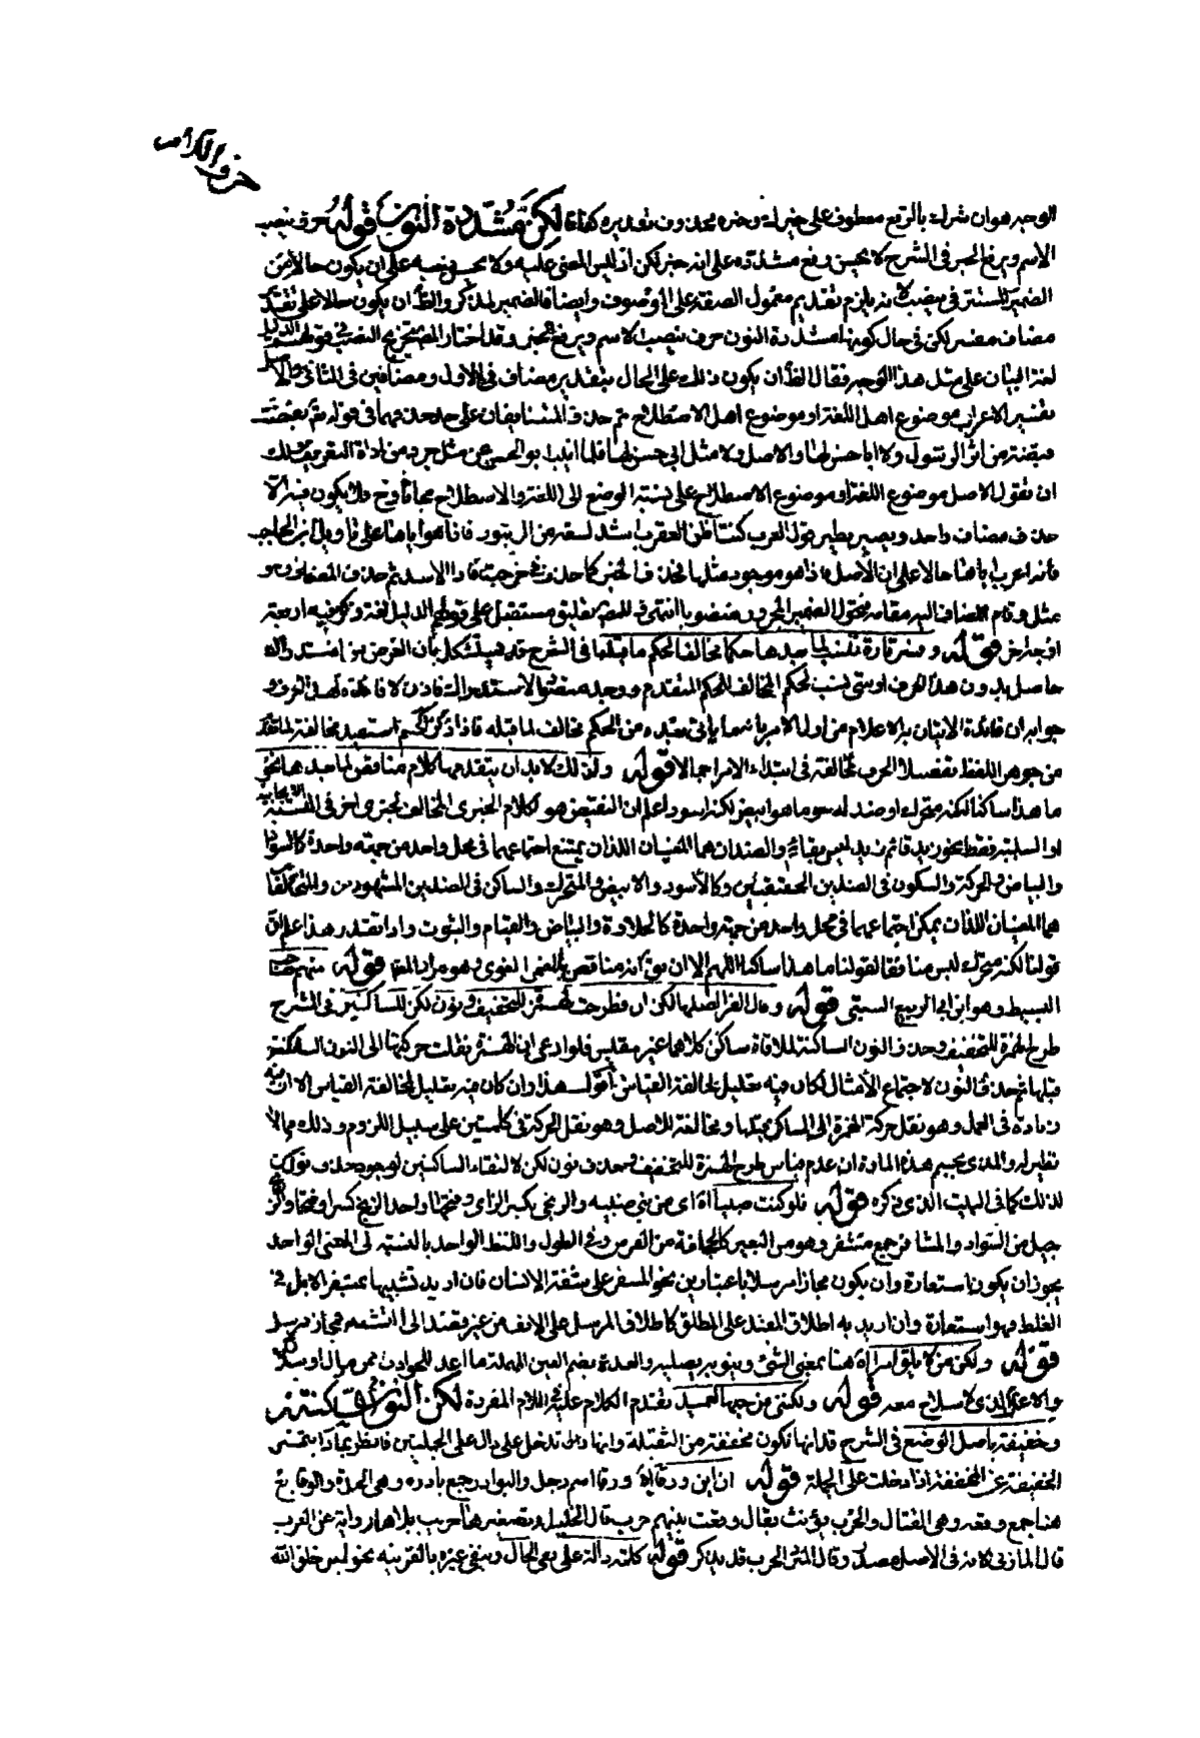 حرف اللام
الوجه هو ان شرك بالرفع معطوف على خبر له وخبره محذوف تقديره كفافا لكنّ مشددة النون قوله حرف ينصب
الاسم ويرفع الخبر في الشرح لا يحسن رفع مشددة على انه خبر لكن اذ ليس المعنى عليه ولا يحسن نصبه على ان يكون حالا من
الضمير المستتر في ينصب لانه يلزم تقديم معمول الصفة على الموصوف وايضا فالضمير لمذكر والظ ان يكون حالا على تقدير
مضاف مفسر لكن في حال كونها مشددة النون حرف ينصب الاسم ويرفع الخبر وقد اختار المص تخريج النصب في قولهم الدليل
لغة البيان على مثل هذا الوجه فقال الظ ان يكون ذلك على الحال بتقدير مضاف في الاول ومضافين في الثاني والاصل
تفسير الاعراب موضوع اهل اللغة او موضوع اهل الاصطلاح ثم حذف المتضايفان على حد حذفهما في قوله تع فقبضت
قبضة من اثر الرسول ولا ابا حسن لها والاصل ولا مثل ابي حسن لها فلما انيب ابو الحسن عن مثل جرد من اداة التعريف ولك
ان تقول الاصل موضوع اللغة او موضوع الاصطلاح على نسبة الوضع الى اللغة والاصطلاح مجازا وح فلا يكون فيه الا
حذف مضاف واحد ويصير نظير قول العرب كنت اظن العقرب اشد لسعة من الزنبور فاذا هو اياها على تاويل ابن الحاجب
فانه اعرب اياها حالا على ان الاصل فاذا هو موجود مثلها فحذف الخبر كما حذف في خرجت فاذا الاسد ثم حذف المضاف وهو
مثل وقام المضاف اليه مقامه فتحول الضمير المجرور منصوبا انتهى وللمص تعليق مستقل على قولهم الدليل لغة وذكر فيه اربعة
اوجه اخر قوله وفسر تارة تنسب لما بعدها حكما مخالفا لحكم ما قبلها في الشرح قد يستشكل بان الغرض من الاستدراك
حاصل بدون هذا الحرف او متى نسب لحكم المخالف للحكم المتقدم ووجد معنى الاستدراك فاذن لا فائدة لهذا الحرف و
جوابه ان فائدة الاتيان به الاعلام من اول الامر بان ما ياتي بعده من الحكم مخالف لما قبله فاذا ذكر الحكم استفيد مخالفته لما تقدم
من جوهر اللفظ تفصيلا الحرب مخالفته في ابتداء الامر اجمالا قوله ولذلك لا بد ان يتقدمها كلام مناقض لما بعدها نحو
ما هذا ساكنا لكنه متحرك او ضد له نحو ما هو ابيض لكنه اسود اعلم ان النقيض هو لكلام الخبري المخالف لخبري اخر في النسبة الايجابية
او السلبية فقط نحو زيد قائم زيد ليس بقائم والضدان هما المعنيان اللذان يمتنع اجتماعهما في محل واحد من جهة واحدة كالسواد
والبياض والحركة والسكون في الضدين الحقيقيين وكالأسود والابيض والمتحرك والساكن في الضدين المشهورين والمتخالفان
هما المعنيان اللذان يمكن اجتماعهما في محل واحد من جهة واحدة كالحلاوة والبياض والقيام والثبوت واذا تقرر هذا علم ان
قولنا لكنه متحرك ليس مناقضا لقولنا ما هذا ساكنا اللهم الا ان يق انه مناقض بالمعنى اللغوي وهو مراد المص قوله منهم صاحب
البسيط وهو ابن ابي الربيع السبتي قوله وقال الفراء اصلها لكن ان فطرحت الهمزة للتخفيف ونون لكن للساكنين في الشرح
طرح الهمزة للتخفيف وحذف النون الساكنة لملاقاة ساكن كلاهما غير مقيس فلو ادعى ان الهمزة نقلت حركتها الى النون الساكنة
قبلها ثم حذف النون لاجتماع الأمثال لكان فيه تقليل لمخالفة القياس أقول هذا وان كان فيه تقليل لمخالفة القياس الا ان فيه
زيادة في العمل وهو نقل حركة الهمزة الى الساكن قبلها ومخالفة للاصل وهو نقل الحركة في كلمتين على سبيل اللزوم وذلك مما لا
نظير له والذي يحسم هذه المادة ان عدم قياس طرح الهمزة للتخفيف وحذف نون لكن لالتقاء الساكنين لوجود حذف نون لكن
لذلك كما في البيت الذي ذكره قوله فلو كنت ضبيا اي من بني ضبة والزنجي بكسر الزاي وفتحها واحد الزنج كسرا وفتحا والزنج
جيل من السواد والمشافر جمع مشفر وهو من البعير كالجحفلة من الفرس وفي الطول واللفظ الواحد بالنسبة الى المعنى الواحد
يجوز ان يكون استعارة وان يكون مجازا مرسلا باعتبارين نحو المشفر على شفة الانسان فان اريد تشبيهها بمشفر الابل في
الغلظ فهو استعارة وان اريد به اطلاق المقيد على المطلق كاطلاق المرسن على الانف من غير قصد الى التشبيه فمجاز مرسل
قوله ولكن من لا يلق امرا هنا بمعنى الشئ وينوبه يصيبه والعدة بضم العين المهملة ما اعد للحوادث من مال او سلاح
والاعزل الذي لا سلاح معه قوله ولكنني من حبها لعميد تقدم الكلام عليه في اللام المفردة لكن النون ساكنة
وخفيفة باصل الوضع في الشرح قد انها تكون مخففة من الثقيلة وانها تدخل على الجملتين فانظر بماذا تتميز
الخفيفة عن المخففة اذا دخلت على الجملة قوله ان ابن ورقاء ورقاء اسم رجل والبوادر جمع بادرة وهي الحدة والوقايع
هنا جمع وقعة وهي القتال والحرب يؤنث يقال وقعت بينهم حرب قال الخليل وتصغيرها حريب بلا هاء رواية عن العرب
قال المازني لانه في الاصل مصدر وقال المبرد الحرب قد يذكر قوله كلمة دالة على نفي الحال وينفي غيره بالقرينة نحو ليس خلق الله